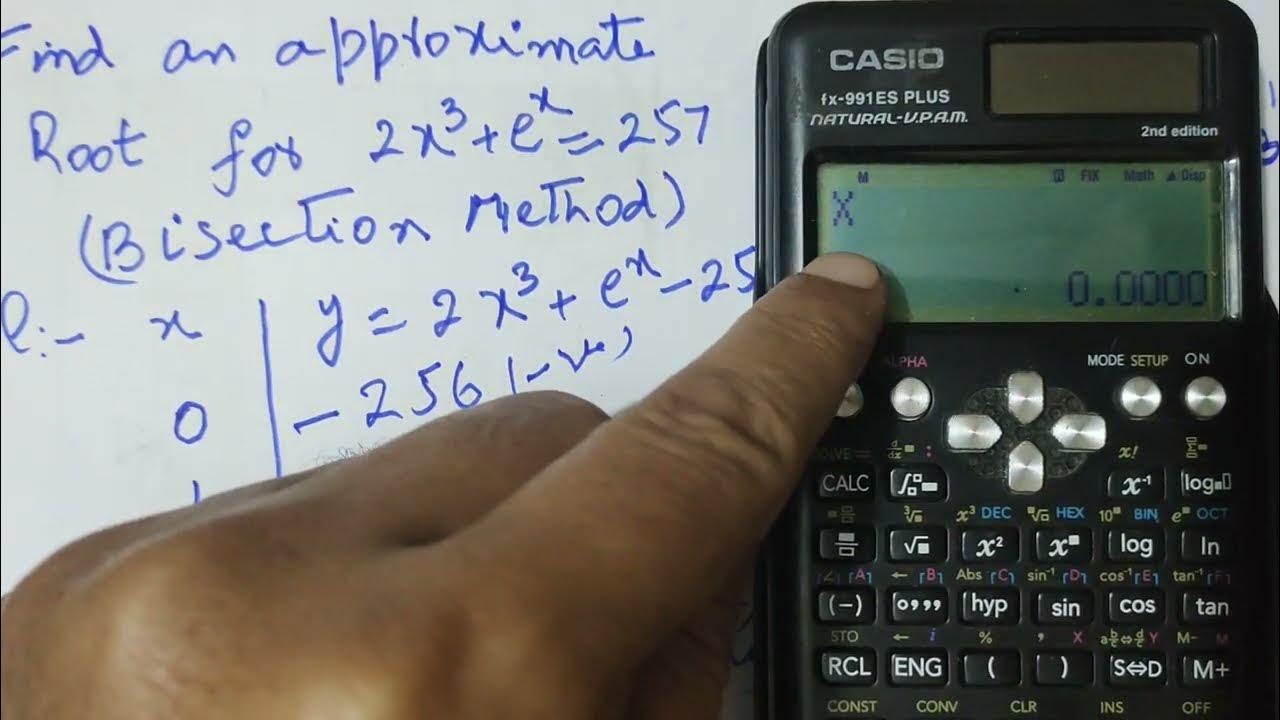 Find an approximate
Root for 2x³ + eˣ = 257
(Bisection Method)
x | y = 2x³ + eˣ - 25
0 | - 256 (-ve)
1
CASIO
fx-991ES PLUS
NATURAL-V.P.A.M.
2nd edition
M FIX Math ▲ Disp
X
0.0000
ALPHA MODE SETUP ON
SOLVE = d/dx : x! Σ
CALC ∫ x⁻¹ log
³√ x³ DEC √ HEX 10 BIN e OCT
√ x² x log ln
A ← B Abs C sin⁻¹ D cos⁻¹ E tan⁻¹ F
(−) hyp sin cos tan
STO ← i % , X a b/c ⇔ d/c Y M− M
RCL ENG ( ) S⇔D M+
CONST CONV CLR INS OFF